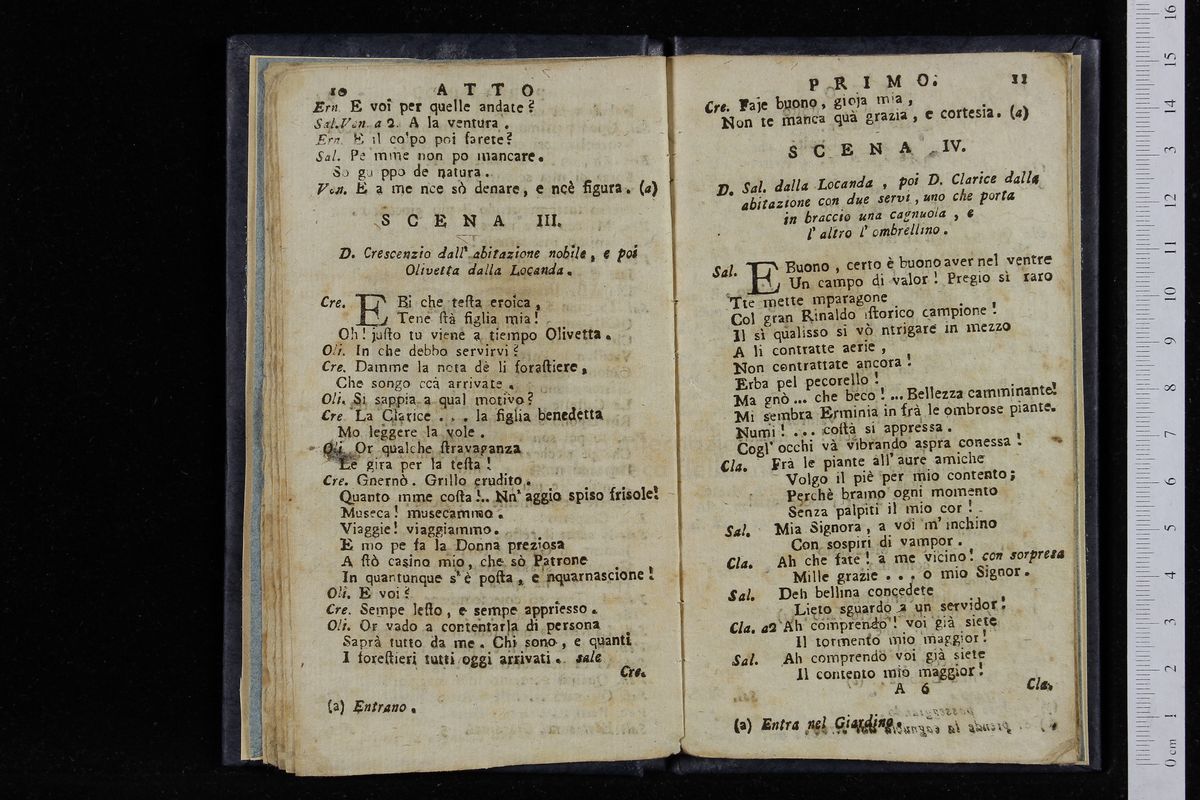 10 ATTO
Ern. E voi per quelle andate?
Sal.Von. a 2. A la ventura.
Ern. E il co'po poi farete?
Sal. Pe mme non po mancare.
So ga ppo de natura.
Von. E a me nce sò denare, e ncè figura. (a)
SCENA III.
D. Crescenzio dall' abitazione nobile, e poi
Olivetta dalla Locanda.
Cre. EBì che teſta eroica,
Tene ſtà figlia mia!
Oh! juſto tu viene a tiempo Olivetta.
Oli. In che debbo servirvi?
Cre. Damme la nota de li foraſtiere,
Che songo ccà arrivate.
Oli. Si sappia a qual motivo?
Cre La Clarice ... la figlia benedetta
Mo leggere la vole.
Oli. Or qualche ſtravaganza
Le gira per la teſta!
Cre. Gnernò. Grillo erudito.
Quanto mme coſta!.. Nn' aggio spiso frisole!
Museca! musecammo.
Viaggie! viaggiammo.
E mo pe fa la Donna preziosa
A ſtò casino mio, che sò Patrone
In quantunque s'è poſta, e nquarnascione!
Oli. E voi?
Cre. Sempe leſto, e sempe appriesso.
Oli. Or vado a contentarla di persona
Saprà tutto da me. Chi sono, e quanti
I foreſtieri tutti oggi arrivati. sale
Cre.
(a) Entrano.
PRIMO. 11
Cre. Faje buono, gioja mia,
Non te manca quà grazia, e cortesia. (a)
SCENA IV.
D. Sal. dalla Locanda, poi D. Clarice dalla
abitazione con due servi, uno che porta
in braccio una cagnuola, e
l' altro l' ombrellino.
Sal. E Buono, certo è buono aver nel ventre
Un campo di valor! Pregio sì raro
Tte mette mparagone
Col gran Rinaldo iſtorico campione!
Il sì qualisso si vò ntrigare in mezzo
A li contratte aerie,
Non contrattate ancora!
Erba pel pecorello!
Ma gnò... che beco!... Bellezza camminante!
Mi sembra Erminia in frà le ombrose piante.
Numi! ... coſtà si appressa.
Cogl' occhi và vibrando aspra conessa!
Cla. Frà le piante all' aure amiche
Volgo il piè per mio contento;
Perchè bramo ogni momento
Senza palpiti il mio cor!
Sal. Mia Signora, a voi m' inchino
Con sospiri di vampor.
Cla. Ah che fate! a me vicino! con sorpresa
Mille grazie ... o mio Signor.
Sal. Deh bellina concedete
Lieto sguardo a un servidor!
Cla. a2 Ah comprendo! voi già siete
Il tormento mio maggior!
Sal. Ah comprendo voi già siete
Il contento mio maggior!
A 6 Cla.
(a) Entra nel Giardino.
0 cm 1 2 3 4 5 6 7 8 9 10 11 12 13 14 15 16